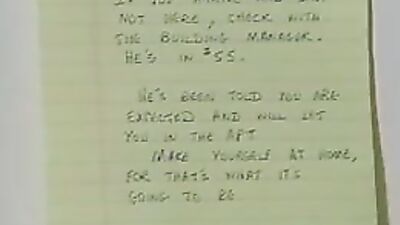 IF YOU ARRIVE AND I'M
NOT HERE, CHECK WITH
THE BUILDING MANAGER.
HE'S IN #55.
HE'S BEEN TOLD YOU ARE
EXPECTED AND WILL LET
YOU IN THE APT
MAKE YOURSELF AT HOME,
FOR THAT'S WHAT IT'S
GOING TO BE